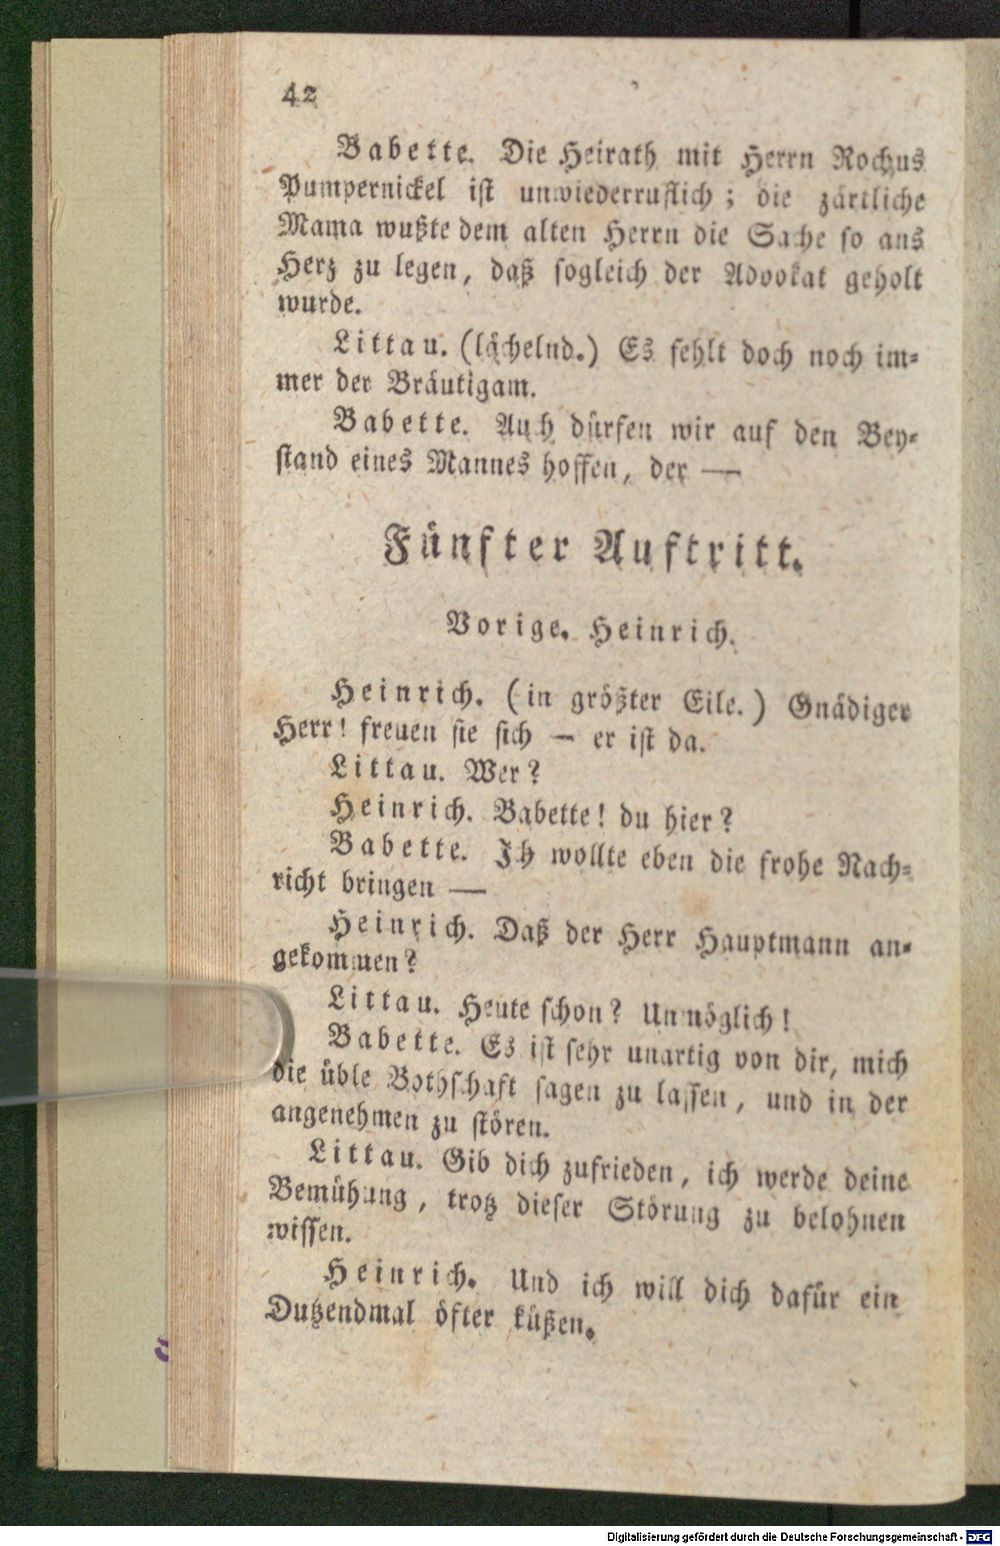 42
Babette. Die Heirath mit Herrn Rochus
Pumpernickel ist unwiederruflich; die zärtliche
Mama wußte dem alten Herrn die Sache so ans
Herz zu legen, daß sogleich der Advokat geholt
wurde.
Littau. (lächelnd.) Es fehlt doch noch im-
mer der Bräutigam.
Babette. Auch dürfen wir auf den Bey-
stand eines Mannes hoffen, der —
Fünfter Auftritt.
Vorige. Heinrich.
Heinrich. (in größter Eile.) Gnädiger
Herr! freuen sie sich — er ist da.
Littau. Wer?
Heinrich. Babette! du hier?
Babette. Ich wollte eben die frohe Nach-
richt bringen —
Heinrich. Daß der Herr Hauptmann an-
gekommen?
Littau. Heute schon? Unmöglich!
Babette. Es ist sehr unartig von dir, mich
die üble Bothschaft sagen zu lassen, und in der
angenehmen zu stören.
Littau. Gib dich zufrieden, ich werde deine
Bemühung, trotz dieser Störung zu belohnen
wissen.
Heinrich. Und ich will dich dafür ein
Dutzendmal öfter küßen.
Digitalisierung gefördert durch die Deutsche Forschungsgemeinschaft - DFG